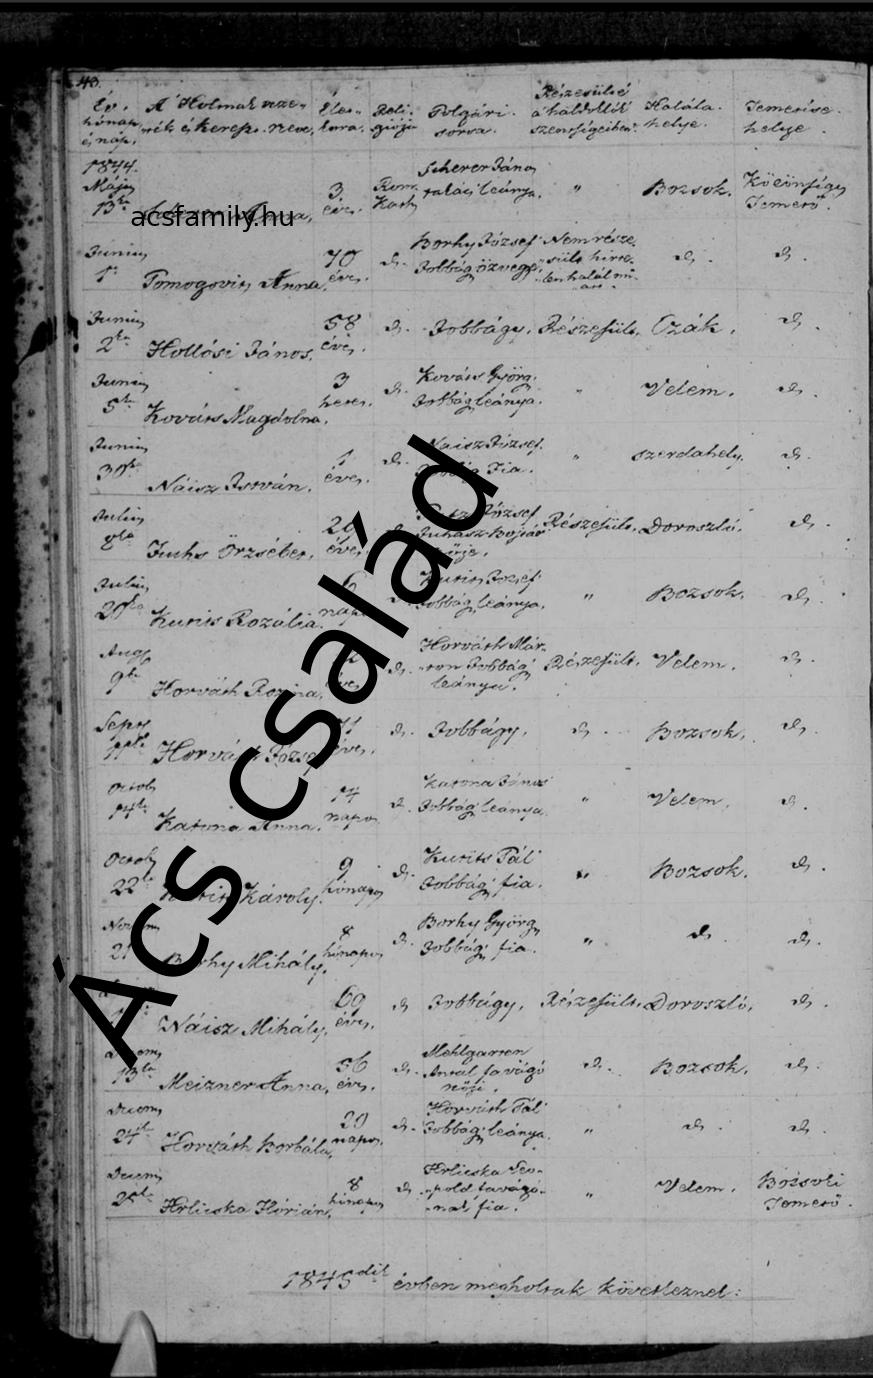 43.
Év, hónap és nap.
A' Holtnak veze-
ték és kereszt neve,
Élet-
kora.
Reli-
giója
Polgári
sorsa.
Részesült é
a' haldoklók
szentségeiben?
Halála
helye.
Temetése
helye.
1844.
Május 13
3 éves
Rom. Kath.
Scherer János
leánya.
"
Bozsok.
Temető.
acsfamily.hu
Június 1
Tomogovits Anna,
70 éves.
d.
Borhy József
Jobbágy özvegye,
Nem része-
sült hirte-
len halál mi-
att.
d.
d.
Június 2
Hollósi János,
58 éves.
d.
Jobbágy,
Részesült,
Czák,
d.
Június 5
Kováts Magdolna,
3 hetes.
d.
Kováts György
Jobbágy leánya.
"
Velem,
d.
Június 30
Náisz István,
1 éves.
d.
Náisz József
Fia.
"
Szerdahely,
d.
Július
Fuchs Örzsébet,
éves,
József
Juhász
Részesült,
Doroszló,
d.
Július
Kurits Rozália.
6 nap
Kurits József
Jobbágy leánya,
"
Bozsok,
d.
Aug. 9
Horváth Rozina,
éves,
d.
Horváth Már-
ton Jobbágy
leánya.
Részesült,
Velem,
d.
Sept.
Horváth József
71 éves.
d.
Jobbágy,
d.
Bozsok,
d.
Octob. 14
Katona Anna,
14 napos
d.
Katona János
Jobbágy leánya
"
Velem,
d.
Octob. 22
Károly,
9 hónapos
d.
Kurits Pál
Jobbágy fia.
"
Bozsok.
d.
Novem. 21
Borhy Mihály,
8 hónapos,
d.
Borhy György
Jobbágy fia.
"
d.
d.
Náisz Mihály,
69 éves,
d.
Jobbágy,
Részesült,
Doroszló,
d.
13
Meizner Anna,
56 éves,
d.
Mehlgarten
Antal favágó
nője.
d.
Bozsok,
d.
Decem. 24
Horváth Borbála,
20 napos,
d.
Horváth Pál
Jobbágy leánya.
"
d.
d.
Decem.
Hrlicska Flórián,
8 hónapos
d.
Hrlicska Leo-
pold favágó-
nak fia.
"
Velem,
Bozsoki
Temető.
1845dik évben megholtak következnek:
Ács család